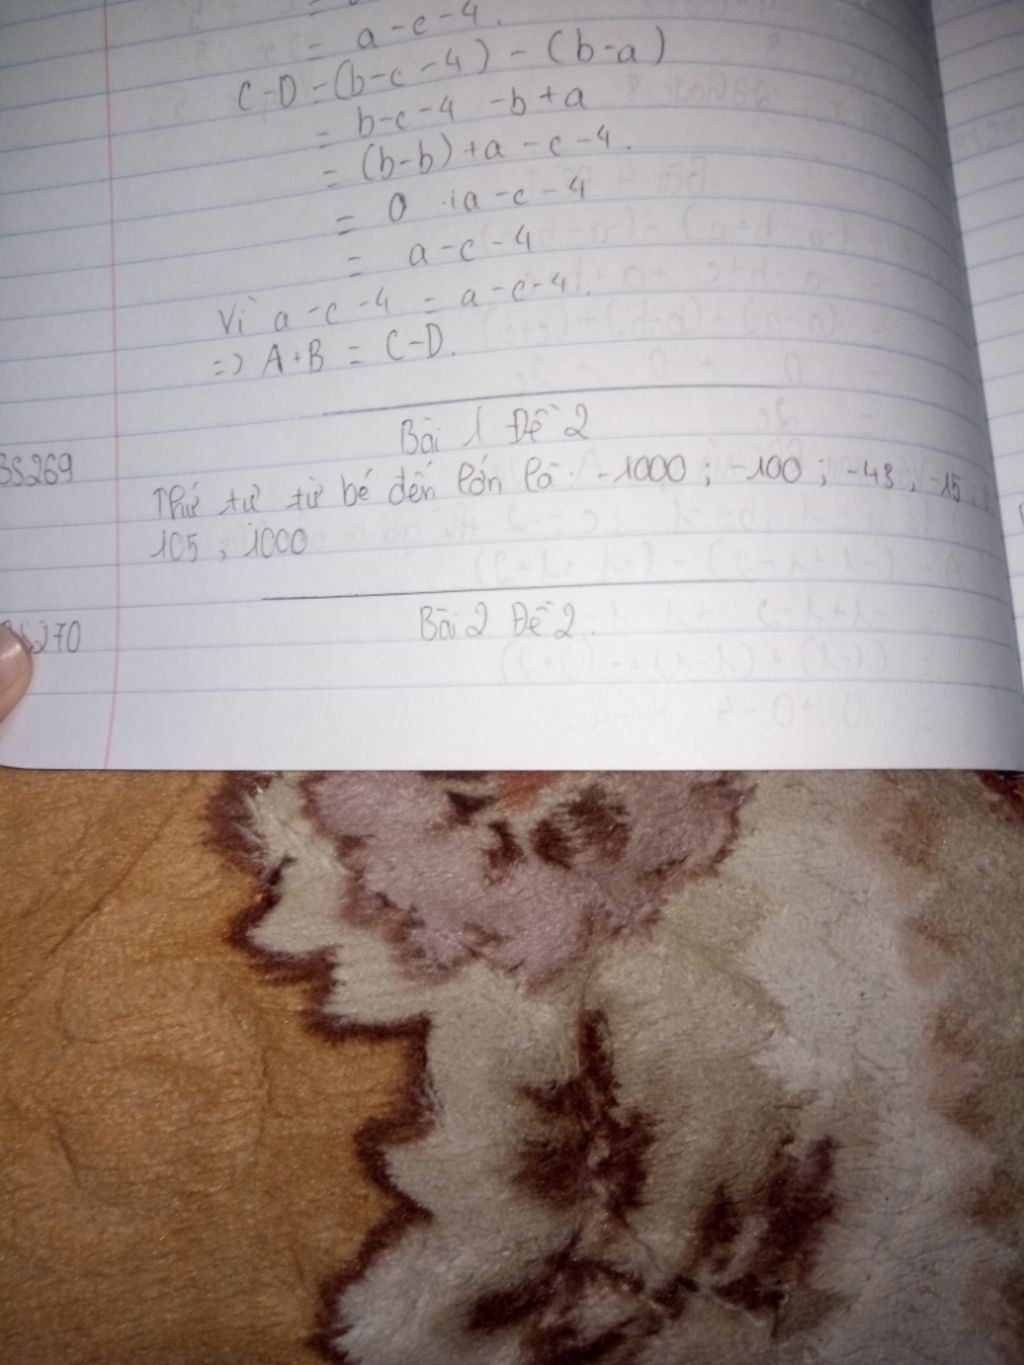 = a-c-4.
C-D=(b-c-4) - (b-a)
= b-c-4 -b+a
= (b-b)+a-c-4.
= 0 +a-c-4
= a-c-4
Vì a-c-4 = a-c-4.
=> A+B = C-D.
Bài 1 Đề 2
BS269
Thứ tự từ bé đến lớn là: -1000 ; -100 ; -43 ; -15 ;
105 ; 1000
Bài 2 Đề 2.
BS270